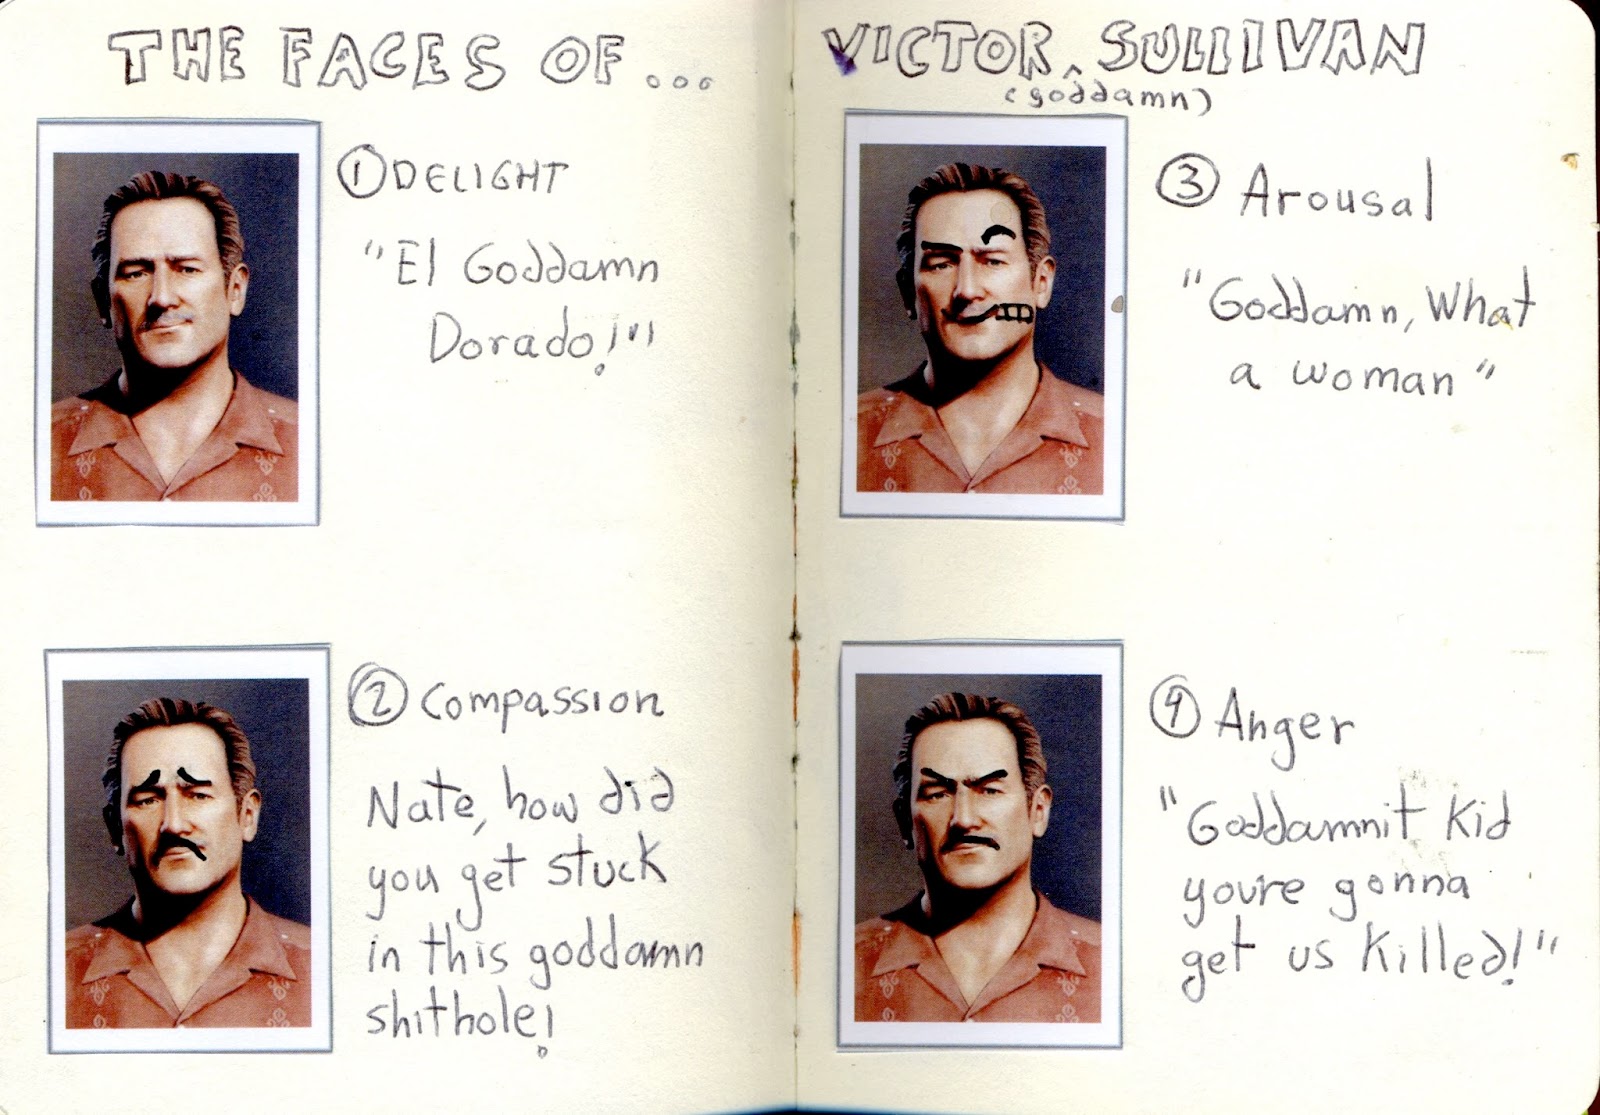 THE FACES OF...
① DELIGHT
"El Goddamn
Dorado!"
② Compassion
Nate, how did
you get stuck
in this goddamn
shithole!
VICTOR ^ SULLIVAN
(goddamn)
③ Arousal
"Goddamn, What
a woman"
④ Anger
"Goddamnit kid
you're gonna
get us killed!"